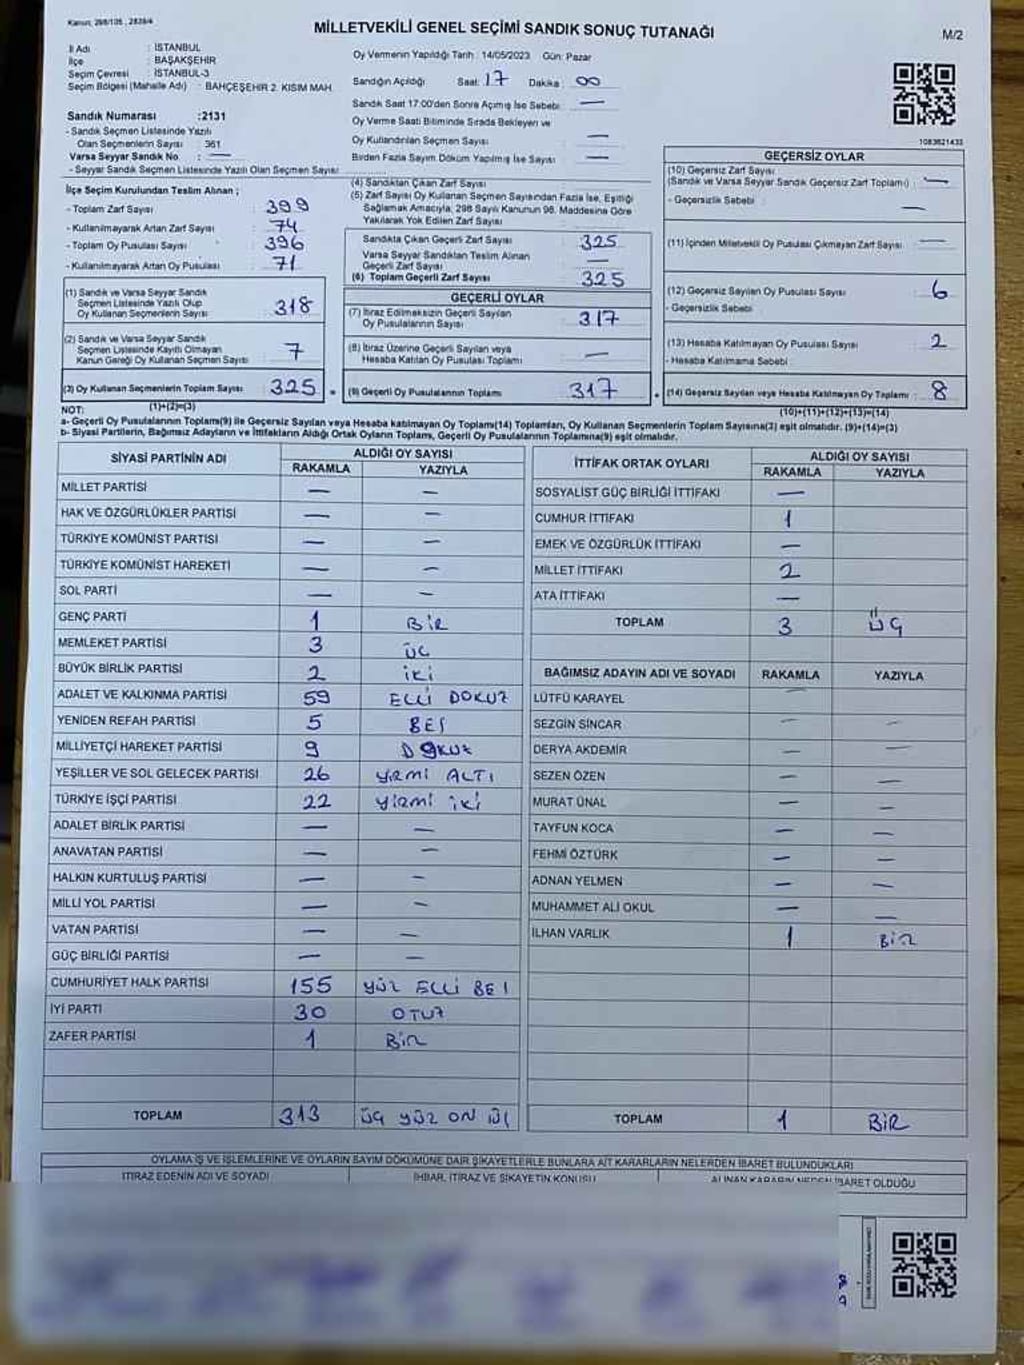 Kanun: 298/105, 2839/4
MİLLETVEKİLİ GENEL SEÇİMİ SANDIK SONUÇ TUTANAĞI
M/2
İl Adı : İSTANBUL
İlçe : BAŞAKŞEHİR
Seçim Çevresi : İSTANBUL-3
Seçim Bölgesi (Mahalle Adı) : BAHÇEŞEHİR 2. KISIM MAH.
Oy Vermenin Yapıldığı Tarih : 14/05/2023 Gün: Pazar
Sandığın Açıldığı Saat: 17 Dakika : 00
Sandık Saat 17:00'den Sonra Açılmış İse Sebebi: —
Oy Verme Saati Bitiminde Sırada Bekleyen ve
Oy Kullandırılan Seçmen Sayısı : —
Birden Fazla Sayım Döküm Yapılmış İse Sayısı : —
Sandık Numarası :2131
- Sandık Seçmen Listesinde Yazılı
Olan Seçmenlerin Sayısı : 361
Varsa Seyyar Sandık No : —
- Seyyar Sandık Seçmen Listesinde Yazılı Olan Seçmen Sayısı :
1083621433
İlçe Seçim Kurulundan Teslim Alınan ;
- Toplam Zarf Sayısı : 399
- Kullanılmayarak Artan Zarf Sayısı : 74
- Toplam Oy Pusulası Sayısı : 396
- Kullanılmayarak Artan Oy Pusulası : 71
(1) Sandık ve Varsa Seyyar Sandık
Seçmen Listesinde Yazılı Olup
Oy Kullanan Seçmenlerin Sayısı : 318
(2) Sandık ve Varsa Seyyar Sandık
Seçmen Listesinde Kayıtlı Olmayan
Kanun Gereği Oy Kullanan Seçmen Sayısı : 7
(3) Oy Kullanan Seçmenlerin Toplam Sayısı : 325
(1)+(2)=(3)
(4) Sandıktan Çıkan Zarf Sayısı :
(5) Zarf Sayısı Oy Kullanan Seçmen Sayısından Fazla İse, Eşitliği
Sağlamak Amacıyla, 298 Sayılı Kanunun 98. Maddesine Göre
Yakılarak Yok Edilen Zarf Sayısı :
Sandıkta Çıkan Geçerli Zarf Sayısı : 325
Varsa Seyyar Sandıktan Teslim Alınan
Geçerli Zarf Sayısı : —
(6) Toplam Geçerli Zarf Sayısı : 325
GEÇERLİ OYLAR
(7) İtiraz Edilmeksizin Geçerli Sayılan
Oy Pusulalarının Sayısı : 317
(8) İtiraz Üzerine Geçerli Sayılan veya
Hesaba Katılan Oy Pusulası Toplamı : —
(9) Geçerli Oy Pusulalarının Toplamı : 317
GEÇERSİZ OYLAR
(10) Geçersiz Zarf Sayısı
(Sandık ve Varsa Seyyar Sandık Geçersiz Zarf Toplamı) : —
- Geçersizlik Sebebi : —
(11) İçinden Milletvekili Oy Pusulası Çıkmayan Zarf Sayısı : —
(12) Geçersiz Sayılan Oy Pusulası Sayısı : 6
- Geçersizlik Sebebi :
(13) Hesaba Katılmayan Oy Pusulası Sayısı : 2
- Hesaba Katılmama Sebebi :
(14) Geçersiz Sayılan veya Hesaba Katılmayan Oy Toplamı : 8
(10)+(11)+(12)+(13)=(14)
NOT:
a- Geçerli Oy Pusulasının Toplamı(9) ile Geçersiz Sayılan veya Hesaba katılmayan Oy Toplamı(14) Toplamları, Oy Kullanan Seçmenlerin Toplam Sayısına(3) eşit olmalıdır. (9)+(14)=(3)
b- Siyasi Partilerin, Bağımsız Adayların ve İttifakların Aldığı Ortak Oyların Toplamı, Geçerli Oy Pusulasının Toplamına(9) eşit olmalıdır.
SİYASİ PARTİNİN ADI ALDIĞI OY SAYISI
RAKAMLA YAZIYLA
MİLLET PARTİSİ — —
HAK VE ÖZGÜRLÜKLER PARTİSİ — —
TÜRKİYE KOMÜNİST PARTİSİ — —
TÜRKİYE KOMÜNİST HAREKETİ — —
SOL PARTİ — —
GENÇ PARTİ 1 BİR
MEMLEKET PARTİSİ 3 ÜÇ
BÜYÜK BİRLİK PARTİSİ 2 İKİ
ADALET VE KALKINMA PARTİSİ 59 ELLİ DOKUZ
YENİDEN REFAH PARTİSİ 5 BEŞ
MİLLİYETÇİ HAREKET PARTİSİ 9 DOKUZ
YEŞİLLER VE SOL GELECEK PARTİSİ 26 YİRMİ ALTI
TÜRKİYE İŞÇİ PARTİSİ 22 YİRMİ İKİ
ADALET BİRLİK PARTİSİ — —
ANAVATAN PARTİSİ — —
HALKIN KURTULUŞ PARTİSİ — —
MİLLİ YOL PARTİSİ — —
VATAN PARTİSİ — —
GÜÇ BİRLİĞİ PARTİSİ — —
CUMHURİYET HALK PARTİSİ 155 YÜZ ELLİ BEŞ
İYİ PARTİ 30 OTUZ
ZAFER PARTİSİ 1 BİR
TOPLAM 313 ÜÇ YÜZ ON ÜÇ
İTTİFAK ORTAK OYLARI ALDIĞI OY SAYISI
RAKAMLA YAZIYLA
SOSYALİST GÜÇ BİRLİĞİ İTTİFAKI —
CUMHUR İTTİFAKI 1
EMEK VE ÖZGÜRLÜK İTTİFAKI —
MİLLET İTTİFAKI 2
ATA İTTİFAKI —
TOPLAM 3 ÜÇ
BAĞIMSIZ ADAYIN ADI VE SOYADI RAKAMLA YAZIYLA
LÜTFÜ KARAYEL —
SEZGİN SİNCAR — —
DERYA AKDEMİR — —
SEZEN ÖZEN — —
MURAT ÜNAL — —
TAYFUN KOCA — —
FEHMİ ÖZTÜRK — —
ADNAN YELMEN — —
MUHAMMET ALİ OKUL — —
İLHAN VARLIK 1 BİR
TOPLAM 1 BİR
OYLAMA İŞ VE İŞLEMLERİNE VE OYLARIN SAYIM DÖKÜMÜNE DAİR ŞİKAYETLERLE BUNLARA AİT KARARLARIN NELERDEN İBARET BULUNDUKLARI
İTİRAZ EDENİN ADI VE SOYADI İHBAR, İTİRAZ VE ŞİKAYETİN KONUSU ALINAN KARARIN NEDEN İBARET OLDUĞU